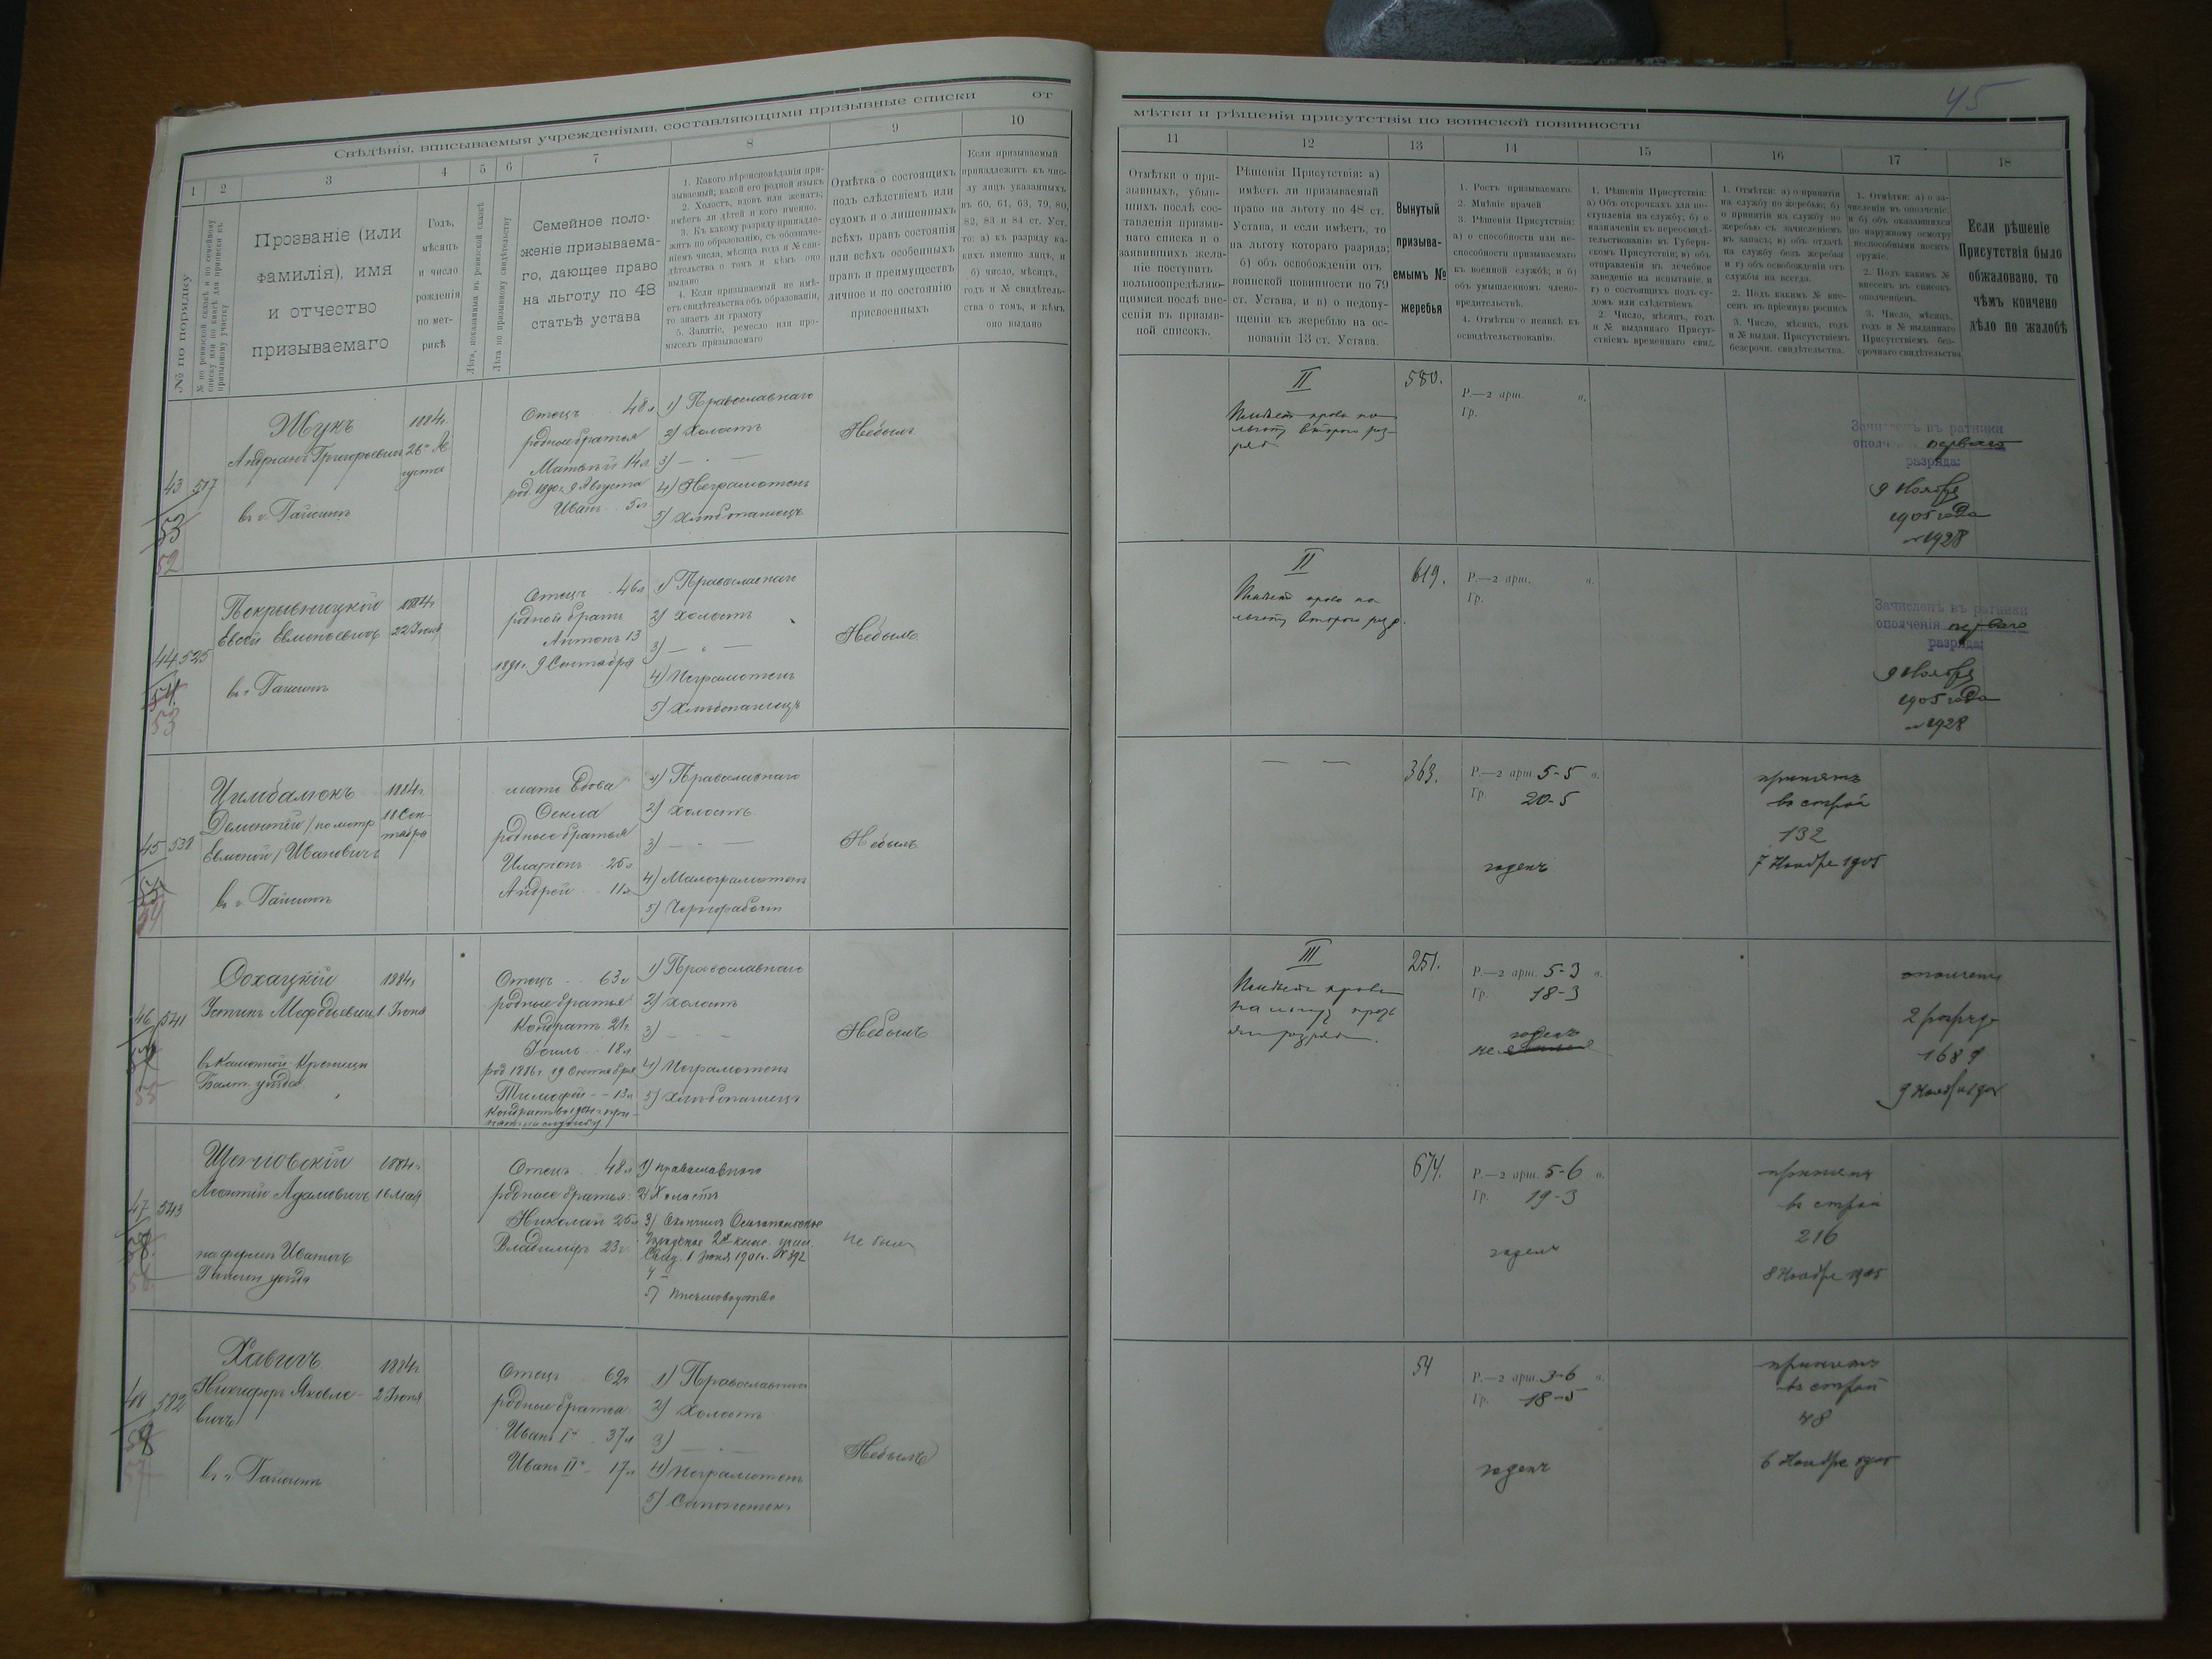 45
Свѣдѣнія, вписываемыя учрежденіями, составляющими призывные списки
от
мѣтки и рѣшенія присутствія по воинской повинности
1
2
3
4
5
6
7
8
9
10
11
12
13
14
15
16
17
18
№ по порядку
Прозваніе (или
фамилія), имя
и отчество
призываемаго
Годъ,
мѣсяцъ
и число
рожденія
по мет-
рикѣ
Лѣта, показанныя въ ревизской сказкѣ
Лѣта по призывному свидѣтельству
Семейное поло-
женіе призываема-
го, дающее право
на льготу по 48
статьѣ устава
1. Какого вѣроисповѣданія при-
зываемый; какой его родной языкъ
2. Холостъ, вдовъ или женатъ;
имѣетъ ли дѣтей и кого именно.
3. Къ какому разряду принадле-
житъ по образованію, съ обозначе-
ніемъ числа, мѣсяца года и № сви-
дѣтельства о томъ и кѣмъ оно
выдано
4. Если призываемый не имѣ-
етъ свидѣтельства объ образованіи,
то знаетъ ли грамоту
5. Занятіе, ремесло или про-
мыселъ призываемаго
Отмѣтка о состоящихъ
подъ слѣдствіемъ или
судомъ и о лишенныхъ
всѣхъ правъ состоянія
или всѣхъ особенныхъ
правъ и преимуществъ
лично и по состоянію
присвоенныхъ
Если призываемый
принадлежитъ къ чис-
лу лицъ указанныхъ
въ 60, 61, 63, 79, 80,
82, 83 и 84 ст. Уст.
то: а) къ разряду ка-
кихъ именно лицъ, и
б) число, мѣсяцъ,
годъ и № свидѣтель-
ства о томъ, и кѣмъ
оно выдано
Отмѣтки о при-
зывныхъ, убыв-
шихъ послѣ сос-
тавленія призыв-
наго списка и о
заявившихъ жела-
ніе поступить
вольноопредѣляю-
щимися послѣ вне-
сенія въ призыв-
ной списокъ.
Рѣшенія Присутствія: а)
имѣетъ ли призываемый
право на льготу по 48 ст.
Устава, и если имѣетъ, то
на льготу котораго разряда;
б) объ освобожденіи отъ
воинской повинности по 79
ст. Устава, и в) о недопу-
щеніи къ жеребью на ос-
нованіи 13 ст. Устава.
Вынутый
призыва-
емымъ №
жеребья
1. Ростъ призываемаго.
2. Мнѣніе врачей
3. Рѣшенія Присутствія:
а) о способности или не-
способности призываемаго
къ военной службѣ; и б)
объ умышленномъ члено-
вредительствѣ.
4. Отмѣтки о неявкѣ къ
освидѣтельствованію.
1. Рѣшенія Присутствія:
а) Объ отсрочкахъ для по-
ступленія на службу; б) о
назначеніи къ переосвидѣ-
тельствованію въ Губерн-
скомъ Присутствіи; в) объ
отправленіи въ лечебное
заведеніе на испытаніе, и
г) о состоящихъ подъ су-
домъ или слѣдствіемъ
2. Число, мѣсяцъ, годъ
и № выданнаго Присут-
ствіемъ временнаго свид.
1. Отмѣтки: а) о принятіи
на службу по жеребью; б)
о принятіи на службу по
жеребью съ зачисленіемъ
въ запасъ; в) объ отдачѣ
на службу безъ жеребья
и г) объ освобожденіи отъ
службы на всегда.
2. Подъ какимъ № вне-
сенъ въ пріемную роспись
3. Число, мѣсяцъ, годъ
и № выдан. Присутствіемъ
безсрочн. свидѣтельства.
1. Отмѣтки: а) о за-
численіи въ ополченіе,
и б) объ оказавшихся
по наружному осмотру
неспособными носить
оружіе.
2. Подъ какимъ №
внесенъ въ списокъ
ополченцевъ.
3. Число, мѣсяцъ,
годъ и № выданнаго
Присутствіемъ без-
срочнаго свидѣтельства
Если рѣшеніе
Присутствія было
обжаловано, то
чѣмъ кончено
дѣло по жалобѣ
43 517
53
52
Жукъ
Андріанъ Григорьевичъ
въ г. Гайсинѣ
1884г.
26го Ав
густа
Отецъ 48 л
родные братья
Матвѣй 14л.
род. 1890г. 9 Августа
Иванъ 5л
1) Православнаго
2) Холостъ
3) — " —
4) Неграмотенъ
5) Хлѣбопашецъ
Небылъ
II
Имѣетъ право на
льготу второго раз-
ряда
580.
Р.—2 арш. в.
Гр.
Зачисленъ въ ратники
ополч перваго
разряда:
9 Ноября
1905 года
№ 1928
44 525
54
53
Евсей
въ г. Гайсинѣ
1884г.
22 Іюня
Отецъ 46л
родной братъ
Антонъ 13
1891г. 9 Сентября
1) Православнаго
2) Холостъ
3) — " —
4) Неграмотенъ
5) Хлѣбопашецъ
Небылъ
II
Имѣетъ право на
льготу второго разр.
619.
Р.—2 арш. в.
Гр.
Зачисленъ въ ратники
ополченія перваго
разряда:
9 Ноября
1905 года
№ 1928
45 538
Цимбалюкъ
Дементій / по метр
/ Ивановичъ
въ г. Гайсинѣ
1884г.
18 Сен-
тября
мать вдова
Фекла
родные братья
Андрей 11л
1) Православнаго
2) Холостъ
3) — " —
4) Малограмотенъ
5) Чернорабочій
Небылъ
— —
363.
Р.—2 арш. 5-5 в.
Гр. 20-5
годенъ
принятъ
въ строй
132
7 Ноября 1905
46 541
55
Сохацкій
Устинъ Мефодьевичъ
Балт. уѣзда
1884г
1 Іюня
Отецъ 63л
родные братья
Кондратъ 21г.
18л
род 1886г. 19 Октября
Тимофей -- 13л
1) Православнаго
2) Холостъ
3) — —
4) Неграмотенъ
5) Хлѣбопашецъ
Небылъ
III
Имѣетъ право
на льготу треть
яго разряда.
251.
Р.—2 арш. 5-3 в.
Гр. 18-3
годенъ
не
ополченецъ
2 разряд
1689
9 Ноября 1905
47 543
Леонтій Адамовичъ
1884г.
16 Мая
Отецъ 48л
родные братья:
Николай 25л
Владиміръ 23г.
1) Православнаго
2) Холостъ
3) Окончилъ
2х клас. учил.
1 Іюня 1901г. № 392
4 —
5) Пчеловодство
Не былъ
674.
Р.—2 арш. 5-6 в.
Гр. 19-3
годенъ
принятъ
въ строй
216
8 Ноября 1905
48 582
Хавичъ
Никифоръ Яковле-
вичъ
въ г. Гайсинѣ
1884г
2 Іюня
Отецъ 62г
родные братья
Иванъ Iй 37л
Иванъ IIй 17л
1) Православнаго
2) Холостъ
3) — " —
4) Неграмотенъ
5) Сапожникъ
Небылъ
54
Р.—2 арш. 3-6 в.
Гр. 18-5
годенъ
принятъ
въ строй
48
6 Ноября 1905